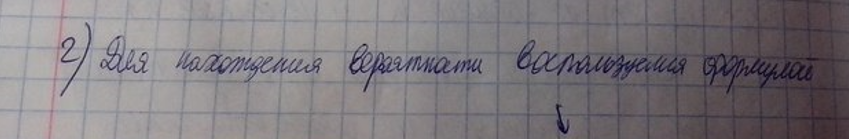 2) Для нахождения вероятности воспользуемся формулой
↓